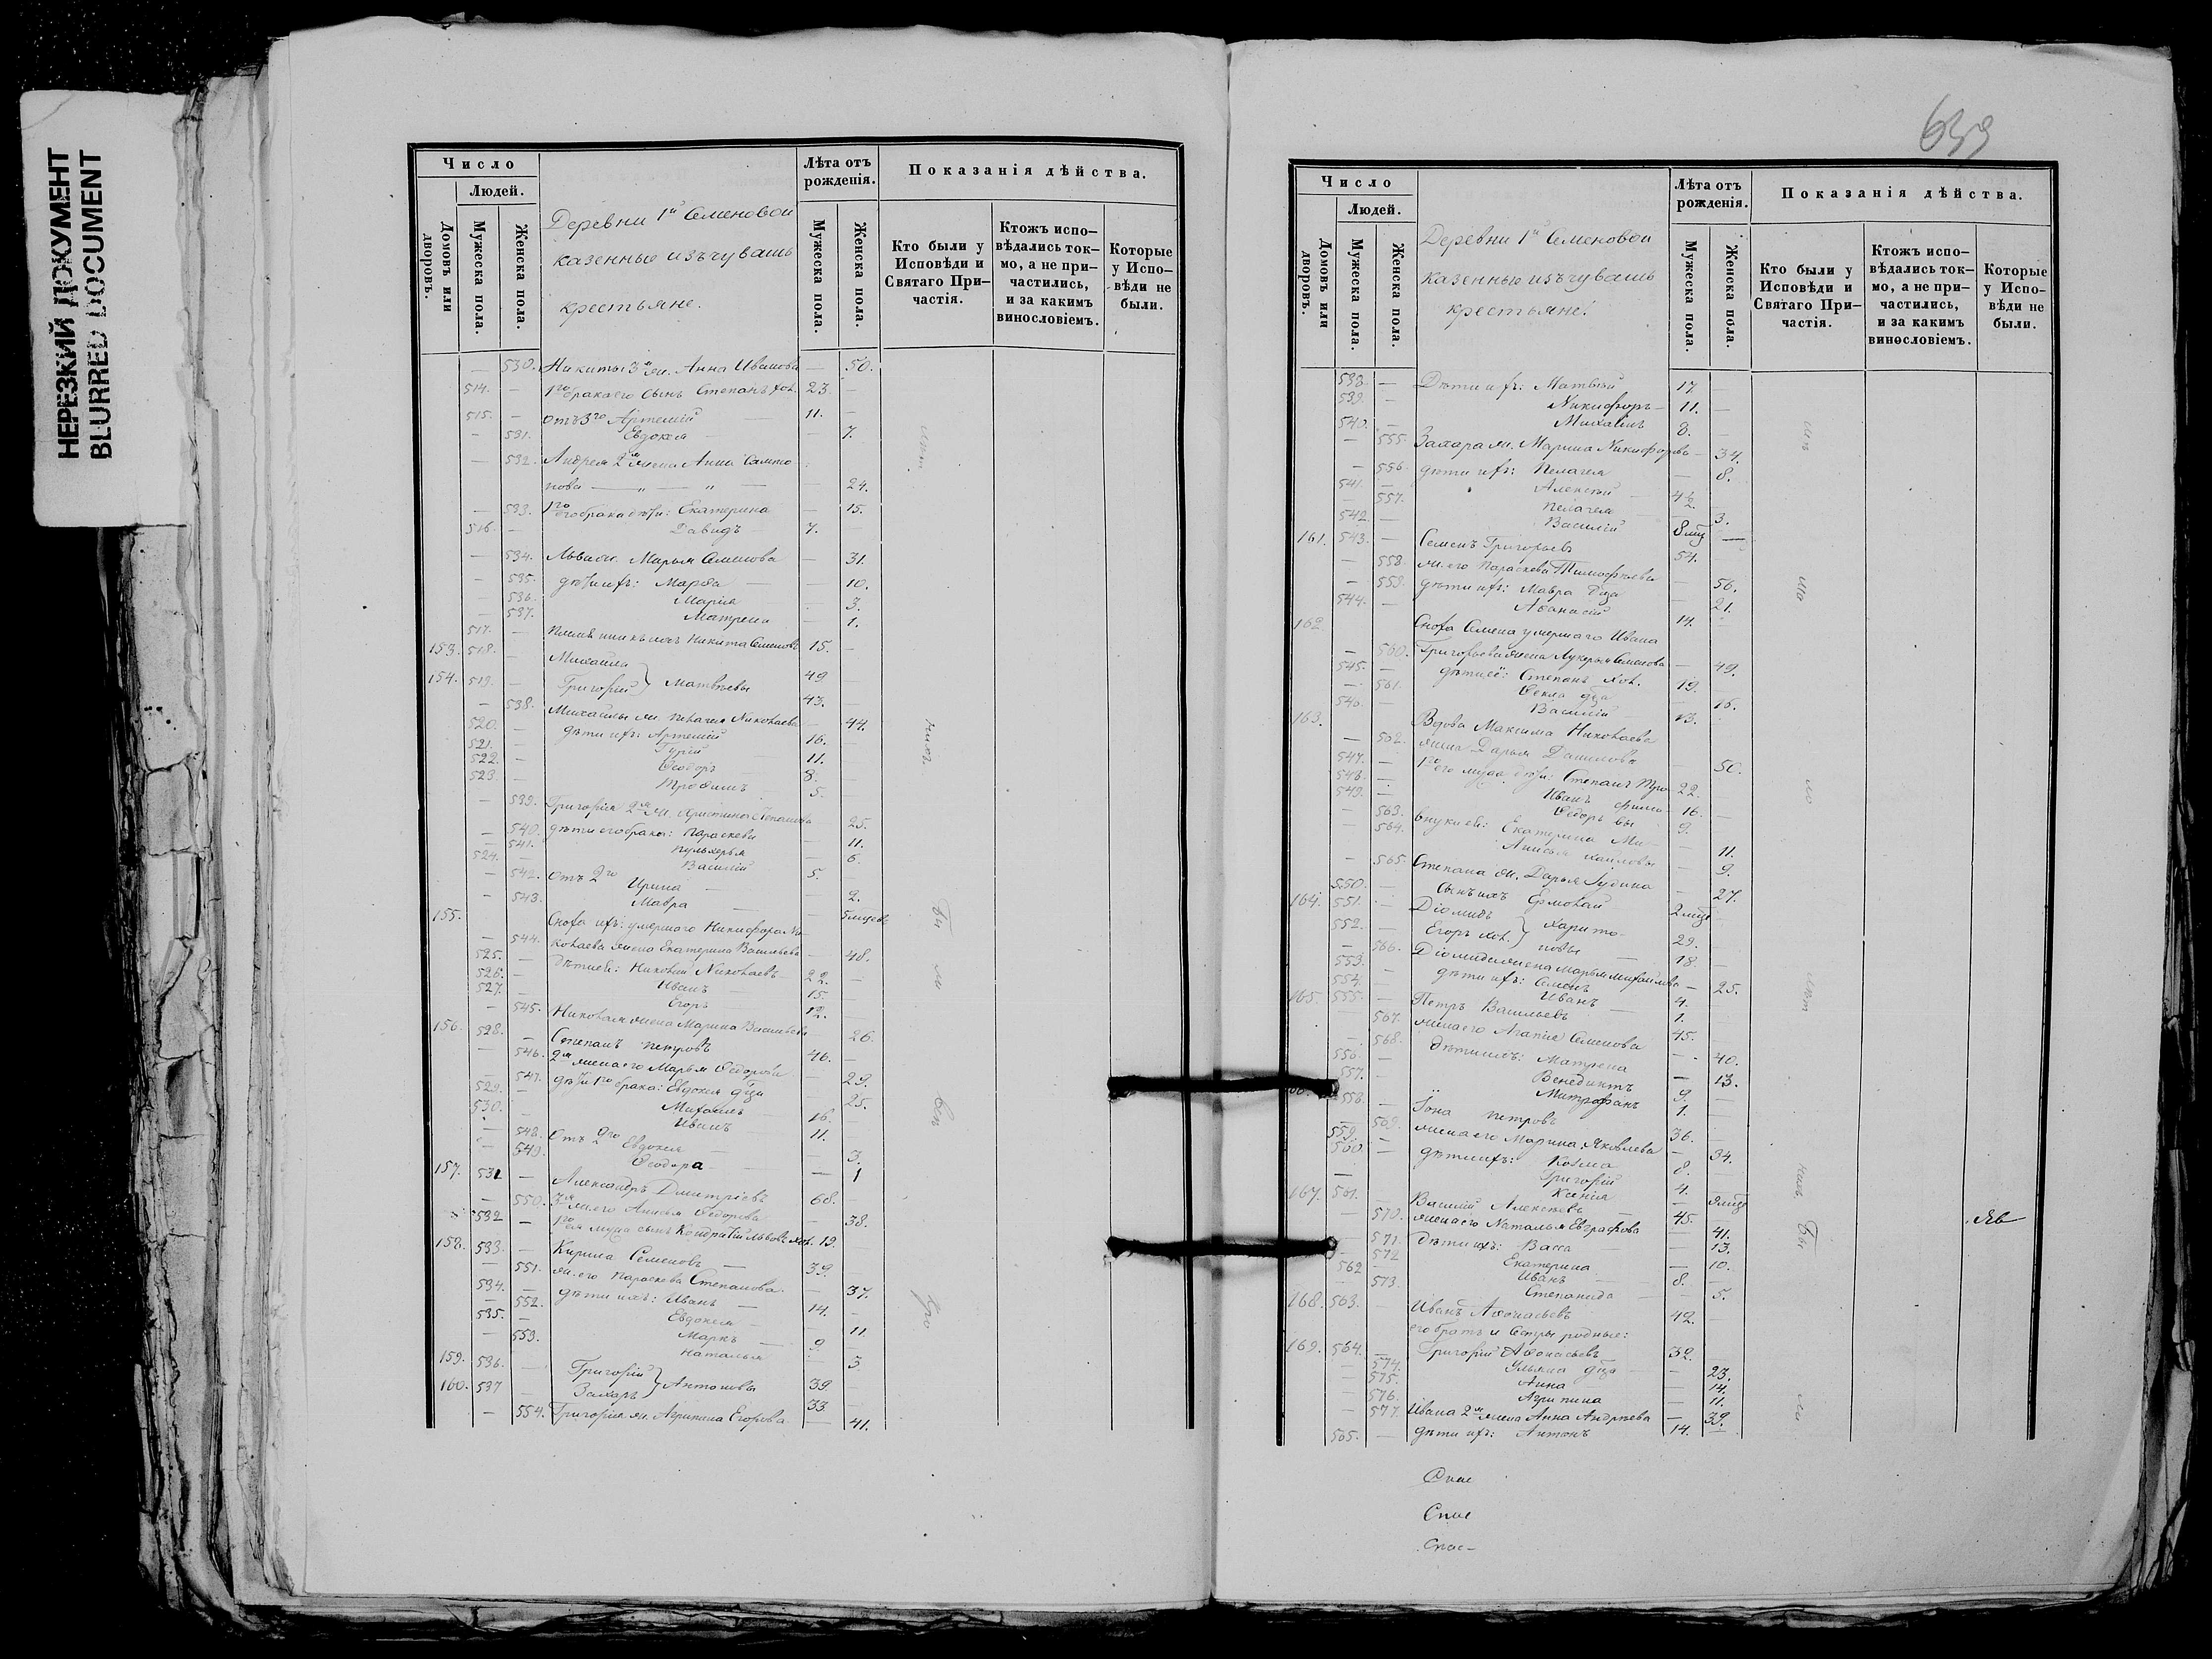 НЕРЕЗКИЙ ДОКУМЕНТ
BLURRED DOCUMENT
639
Число
Людей.
Домовъ или дворовъ.
Мужеска пола.
Женска пола.
Деревни 1й Семеновой
казенные изъ чувашъ
крестьяне.
Лѣта отъ рожденія.
Мужеска пола.
Женска пола.
Показанія дѣйства.
Кто были у Исповѣди и Святаго Причастія.
Ктожъ исповѣдались токмо, а не причастились, и за какимъ винословіемъ.
Которые у Исповѣди не были.
— 530. Никиты 3я ж. Анна Иванова — 50.
514. — 1го брака его сынъ Степанъ хол. 23. —
515. — отъ 3го Артемій 11. —
— 531. Евдокія — 7.
— 532. Андрея 2я жена Анна
— 24.
— 533. 1го его брака дѣти: Екатерина — 15.
516. — Давидъ 7.
— 534. Льва ж. Марья Семенова — 31.
— 535. дѣти ихъ: Марѳа — 10.
— 536. Марія — 3.
— 537. Матрена — 1.
517. — Племянникъ ихъ Никита Семеновъ 15. —
153. 518. — Михайла 49
154. 519. — Григорій } Матвѣевы 43. —
— 538. Михайлы ж. Пелагея Николаева — 44.
520. — дѣти ихъ: Артемій 16. —
521. — Гурій 11.
522. — Ѳеодоръ 8. —
523. — Трофимъ 5. —
— 539. Григорія 2я ж. Христина Степанова 25.
— 540. дѣти его брака: Параскева — 11.
— 541. Пульхерья — 6.
524. — Василій 5. —
— 542. отъ 2го Ирина — 2.
— 543. Мавра — 5 мцевъ
155. Сноха ихъ: умершаго Никифора Ни-
— 544. колаева жена Екатерина Васильева — 48.
525. — Дѣти ей: Николай Николаевъ 22. —
526. — Иванъ 15.
527. — Егоръ 12.
— 545. Николая жена Марина Васильева 26.
156. 528. — Степанъ Петровъ 46. —
— 546. 2я жена его Марья Ѳедорова — 29.
— 547. дѣти 1го брака: Евдокія дѣа — 25.
529. — Михаилъ 16. —
530. — Иванъ 11.
— 548. Отъ 2го Евдокія — 3.
— 549. Ѳеодора — 1
157. 531 — Александръ Дмитріевъ 68.
— 550. 3я ж. его Анисья Ѳедорова — 38.
532 — 1го ея мужа сынъ Кондратій Львовъ хол. 19.
158. 533. — Кирила Семеновъ 39.
— 551. ж. его Параскева Степанова — 37.
534. — дѣти ихъ: Иванъ 14. —
— 552. Евдокія — 11.
535. — Маркъ 9
— 553. Наталья 3
159. 536. — Григорій 39
160. 537 — Захаръ } Антоновы 33
— 554. Григорія ж. Агрипина Егорова — 41.
Число
Людей.
Домовъ или дворовъ.
Мужеска пола.
Женска пола.
Деревни 1й Семеновой
казенные изъ чувашъ
крестьяне.
Лѣта отъ рожденія.
Мужеска пола.
Женска пола.
Показанія дѣйства.
Кто были у Исповѣди и Святаго Причастія.
Ктожъ исповѣдались токмо, а не причастились, и за какимъ винословіемъ.
Которые у Исповѣди не были.
538. — Дѣти ихъ: Матвѣй 17 —
539. — Никифоръ 11. —
540. — Михаилъ 8.
— 555. Захара ж. Марина Никифорова — 34.
— 556. дѣти ихъ: Пелагея — 8.
541. — Алексѣй 4½
— 557. Пелагея — 3.
542. — Василій 8 мц —
161. 543. — Семенъ Григорьевъ 54.
— 558. ж. его Параскева Тимофѣева — 56.
— 559. дѣти ихъ: Мавра дѣа — 21.
544. — Аѳанасій 14. —
162. Сноха Семена умершаго Ивана
— 560. Григорьева жена Лукерья Семенова — 49.
545. — дѣти ее: Степанъ хол. 19.
— 561. Ѳекла дѣа — 16.
546. — Василій 13.
163. Вдова Максима Николаева
— 562. жена Дарья Данилова — 50.
547. — 1го ея мужа дѣти: Степанъ Тро- 22.
548. — Иванъ фимо- 16.
549. — Ѳедоръ вы 9. —
— 563. внуки ей: Екатерина Ми- — 11.
— 564. Анисья хайловы — 9.
— 565. Степана ж. Дарья — 27.
550. — Сынъ ихъ Ермолай 2 мцв
164. 551. — Діомидъ 29. —
552. — Егоръ хол. } Харитоновы 18.
— 566. Діомида жена Марья Михайлова — 25.
553. — дѣти ихъ: Семенъ 4.
554. — Иванъ 1.
165. 555. — Петръ Васильевъ 45.
— 567. жена его Агапія Семенова — 40.
— 568. дѣти ихъ: Матрена — 13.
556. — Венедиктъ 9.
557. — Митрофанъ 1.
558. — Іона Петровъ 36.
— 569. жена его Марина Яковлева — 34.
559. — дѣти ихъ: Козма 8.
560. — Григорій 4.
— Ксенія —
167. 561. Василій Алексѣевъ 45.
— 570. жена его Наталья Евграфова — 41.
— 571. Дѣти ихъ: Васса — 13.
— 572 Екатерина — 10.
562 — Иванъ 8. —
— 573. Степанида — 5.
168. 563. Иванъ Аѳонасьевъ 42. —
его братъ и сестры родные:
169. 564. — Григорій Аѳонасьевъ 32. —
— 574. Ульяна дѣа — 23.
— 575. Анна — 14.
— 576. Агрипина — 11.
— 577. Ивана 2я жена Анна Андреева — 39.
565. — дѣти ихъ: Антонъ 14. —
Спас
Спас
Спас-